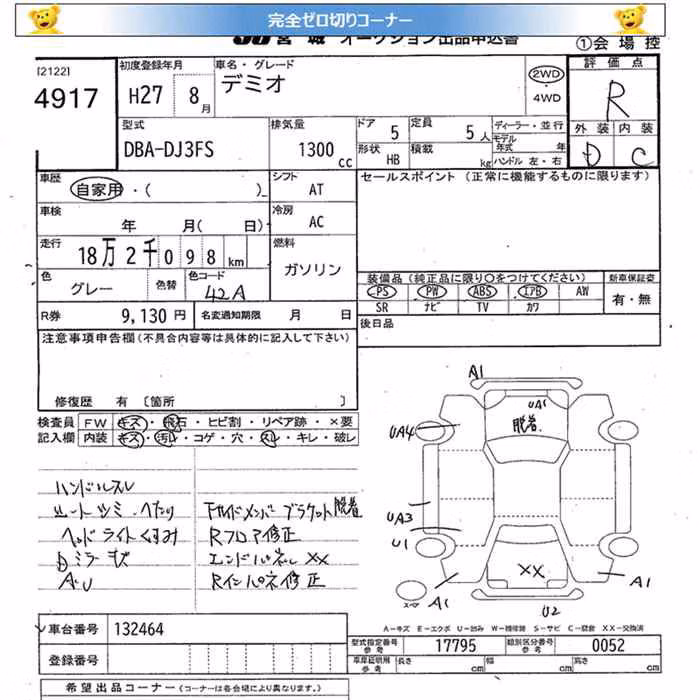 完全ゼロ切りコーナー
JU 宮城 オークション出品申込書 ①会場控
[2122]
4917
初度登録年月 H27 8月
車名・グレード デミオ
2WD・4WD
評価点 R
型式 DBA-DJ3FS
排気量 1300cc
ドア 5 定員 5人 ディーラー・並行
形状 HB 積載 kg モデル年式 年 ハンドル 左・右
外装 D 内装 C
車歴 自家用・( )
シフト AT
セールスポイント (正常に機能するものに限ります)
車検 年 月( 日)
冷房 AC
走行 18万2千098km
燃料 ガソリン
色 グレー 色替 色コード 42A
装備品(純正品に限り○をつけてください) 新車保証書
PS PW ABS エアB AW 有・無
SR ナビ TV カワ
R券 9,130円 名変通知期限 月 日
後日品
注意事項申告欄(不具合内容等は具体的に記入して下さい)
修復歴 有 〔箇所 〕
検査員 FW キズ・飛石・ヒビ割・リペア跡・×要
記入欄 内装 キズ・汚レ・コゲ・穴・スレ・キレ・破レ
ハンドルスレ
シートシミ・へたり
ヘッドライトくすみ
Dミラーキズ
AU
Fサイドメンバーブラケット脱着
Rフロア修正
エンドパネルXX
Rインパネ修正
A1
UA1
脱着
UA4
UA3
U1
XX
スペア
A1
A1
U2
A-キズ E-エクボ U-凹み W-補修跡 S-サビ C-腐蝕 XX-交換済
車台番号 132464
型式指定番号 参考 17795 類別区分番号 参考 0052
登録番号
車庫証明用 参考 長さ cm 幅 cm 高さ cm
希望出品コーナー(コーナーは各会場により異なります。)